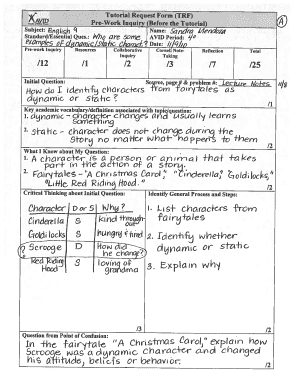 AVID
Tutorial Request Form (TRF)
Pre-Work Inquiry (Before the Tutorial)
A
Subject: English 9
Name: Sandra Mendoza
Standard/Essential Ques.: Why are some examples of dynamic/static charact.?
AVID Period: 4°
Date: 11/9/10
Pre-Work Inquiry
Resources
Collaborative Inquiry
Cornell Note Taking
Reflection
Total
/12
/1
/2
/3
/7
/25
Initial Question:
Source, page # & problem #: Lecture Notes 11/8
How do I identify characters from fairytales as
dynamic or static?
/1
Key academic vocabulary/definition associated with topic/question:
1. dynamic - character changes and usually learns
something
2. static - character does not change during the
story no matter what happens to them
/2
What I Know About My Question:
1. A character is a person or animal that takes
part in the action of a story.
2. Fairytales - "A Christmas Carol," "Cinderella," Goldilocks,"
"Little Red Riding Hood."
/2
Critical Thinking About Initial Question:
Identify General Process and Steps:
Character | D or S | Why?
Cinderella S kind through-out
Goldilocks S hungry & tired
? Scrooge D How did he change?
Red Riding Hood S loving of grandma
/3
1. List characters from
fairytales
2. Identify whether
dynamic or static
3. Explain why
/2
Question from Point of Confusion:
In the fairytale "A Christmas Carol," explain how
Scrooge was a dynamic character and changed
his attitude, beliefs or behavior.
/2